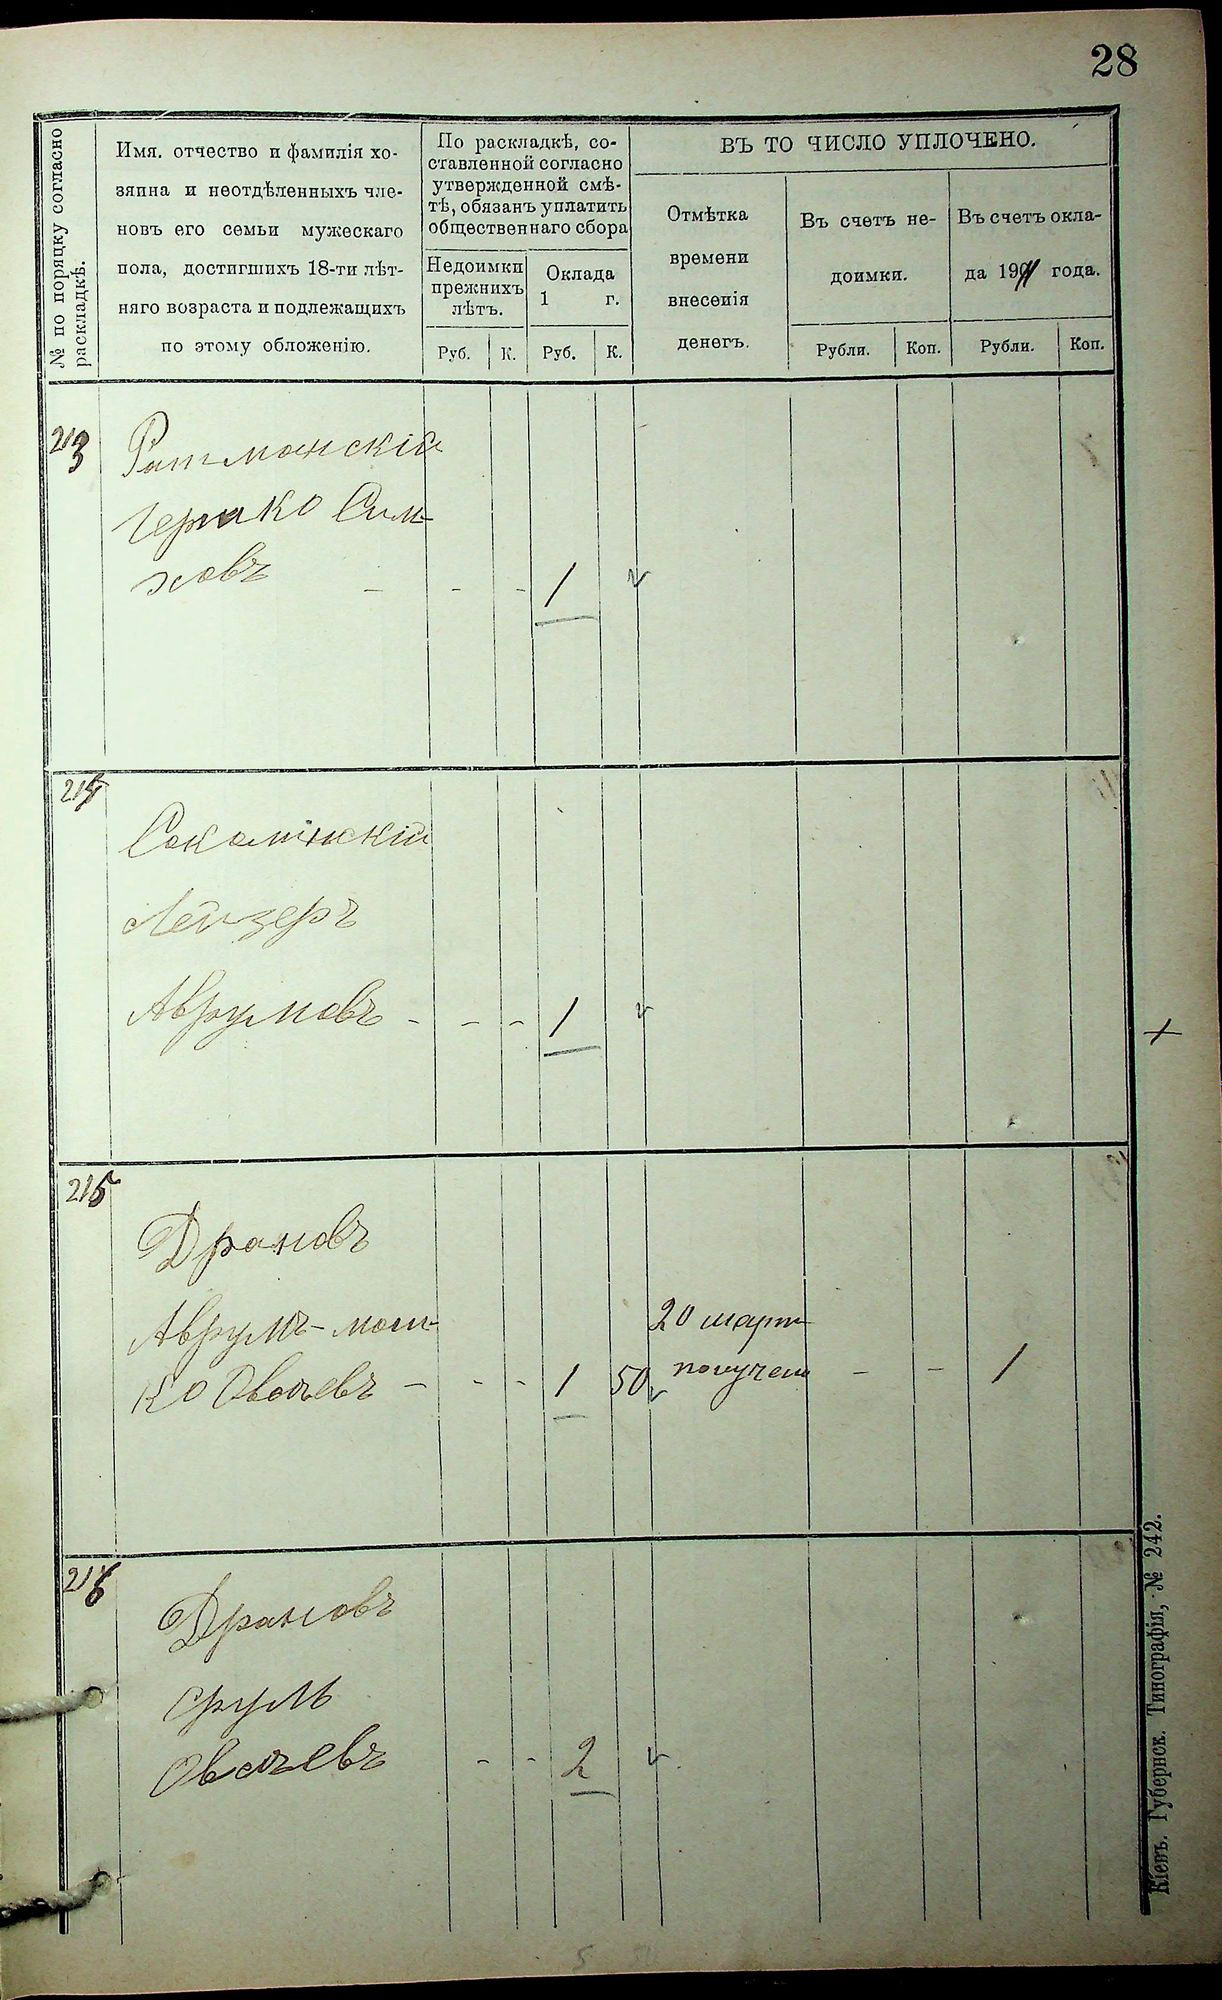 28
№ по порядку согласно
раскладкѣ.
Имя, отчество и фамилія хо-
зяина и неотдѣленныхъ чле-
новъ его семьи мужескаго
пола, достигшихъ 18-ти лѣт-
няго возраста и подлежащихъ
по этому обложенію.
По раскладкѣ, со-
ставленной согласно
утвержденной смѣ-
тѣ, обязанъ уплатить
общественнаго сбора
Недоимки
прежнихъ
лѣтъ.
Оклада
1 г.
Руб. К. Руб. К.
ВЪ ТО ЧИСЛО УПЛОЧЕНО.
Отмѣтка
времени
внесенія
денегъ.
Въ счетъ не-
доимки.
Въ счетъ окла-
да 1901 года.
Рубли. Коп. Рубли. Коп.
213
Ратманскій
Сим-
ховъ - - - 1
214
Лейзеръ
Аврумовъ - - - 1
215
Драновъ
Аврумъ-мош-
ко Овсѣевъ - - - 1 50
20 март
получен - - 1
216
Драновъ
Сруль
Овсѣевъ - - 2
Кіевъ. Губернск. Типографія, № 242.